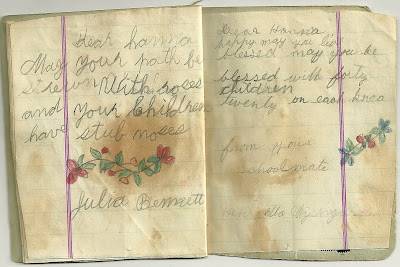 Dear hanna
May your path be
strewn With roses
and your Children
have stub noses
Julia Bennett
Dear Hanna
happy may you live
blessed may you be
blessed with forty
children
twenty on each knea
from your
schoolmate